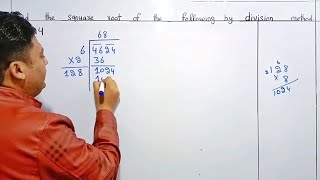 d the squuare root of the following by division method
4
68
6 4624
×2 36
128 1024
1
6
2 128
× 8
1024